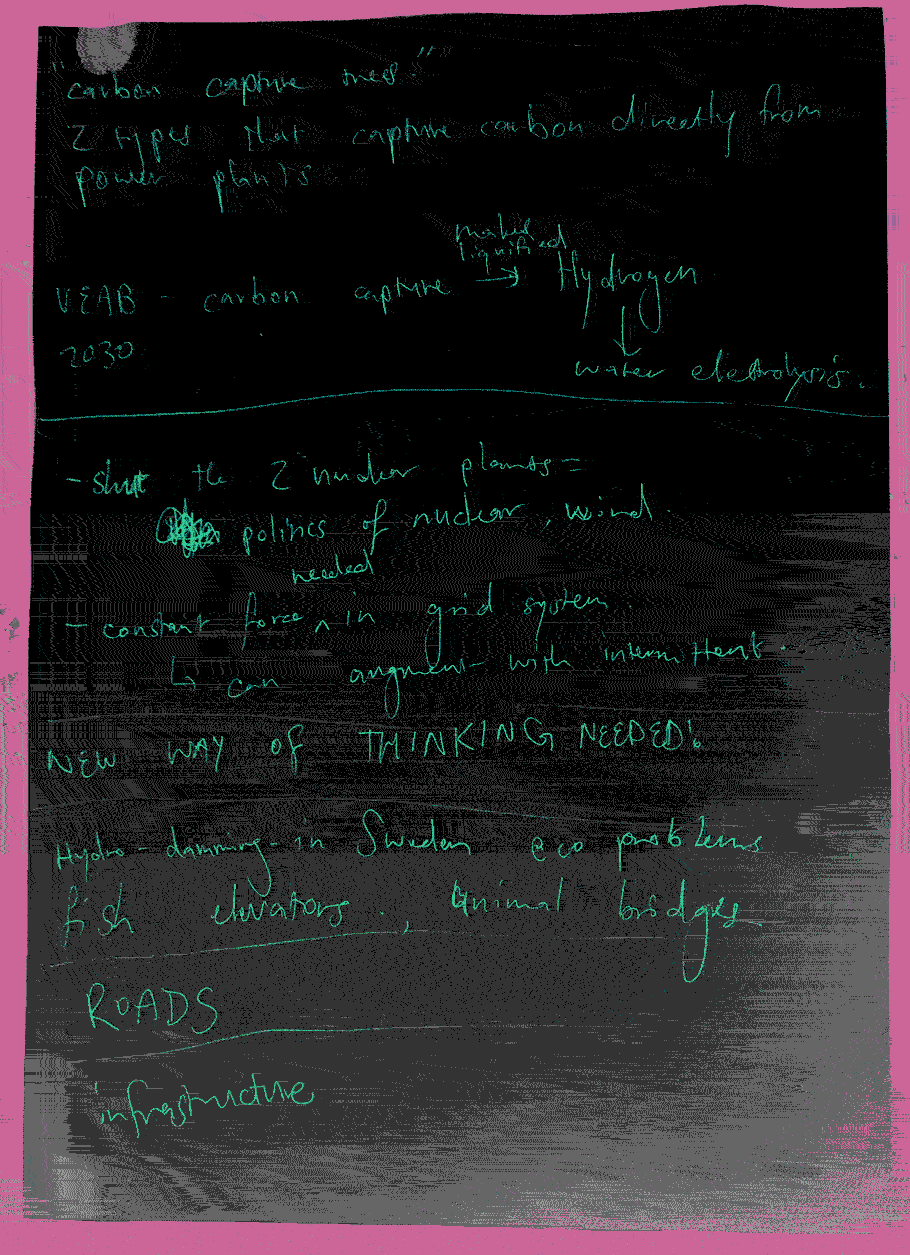 "carbon capture trees."
2 types that capture carbon directly from
power plants
VEAB - carbon capture → Hydrogen
makes
liquified
↓
2030
water electrolysis.
- shut the 2 nuclear plants =
politics of nuclear, wind.
needed
- constant force ^ in grid system.
↳ can augment with intermittent.
NEW WAY OF THINKING NEEDED!
Hydro-damming-in Sweden eco problems
fish elevators., animal bridges
ROADS
infrastructure